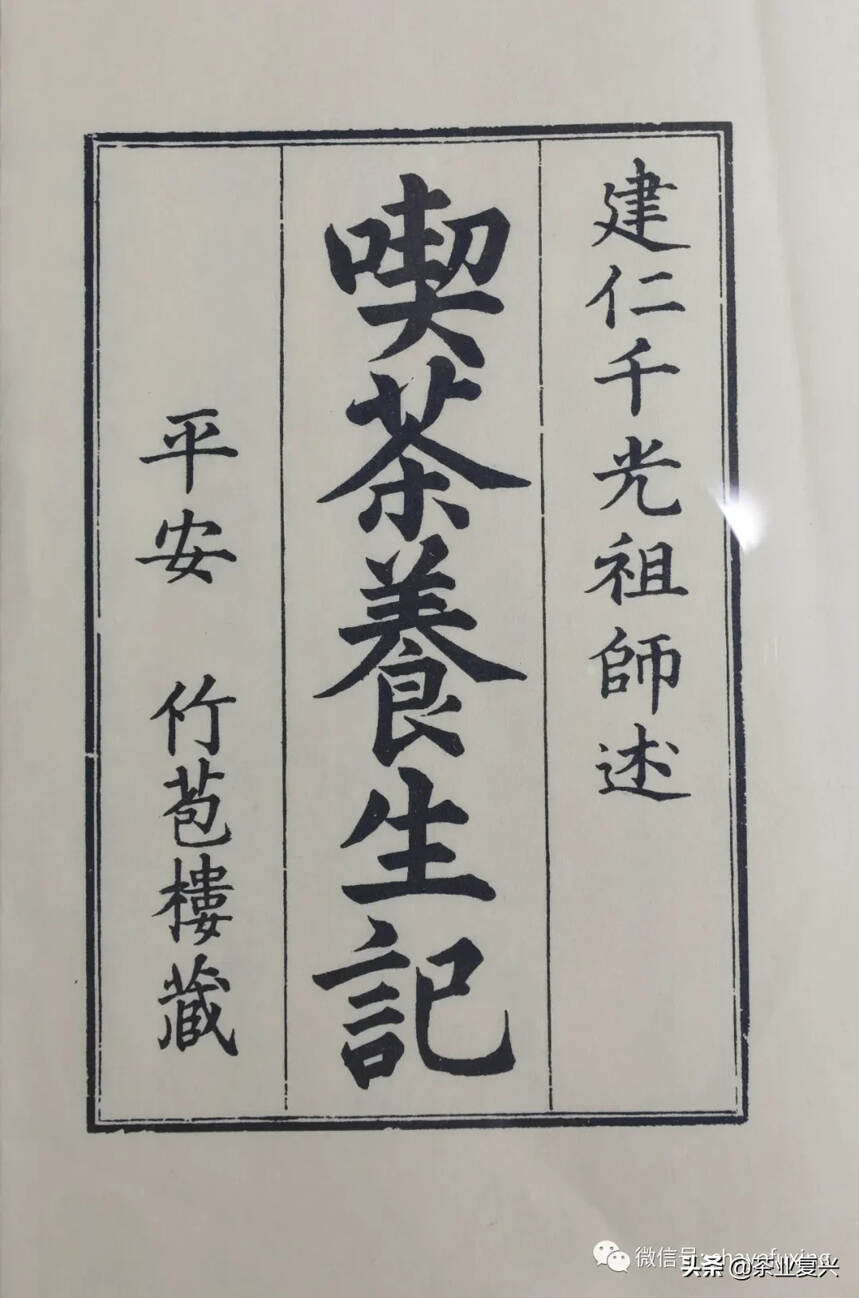 建仁千光祖師述
喫茶養生記
平安 竹苞樓蔵
微信号: chayefuxing
头条 @茶业复兴